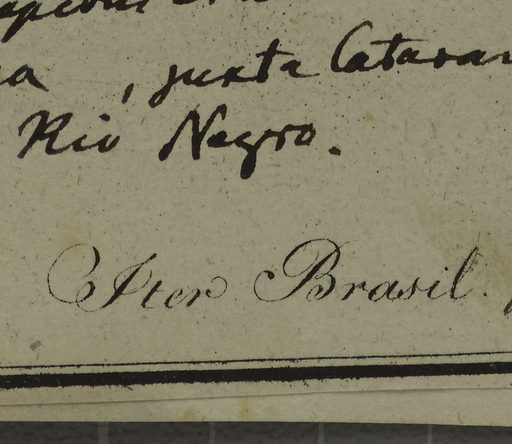 , juxta Catara
Rio Negro.
Iter Brasil.